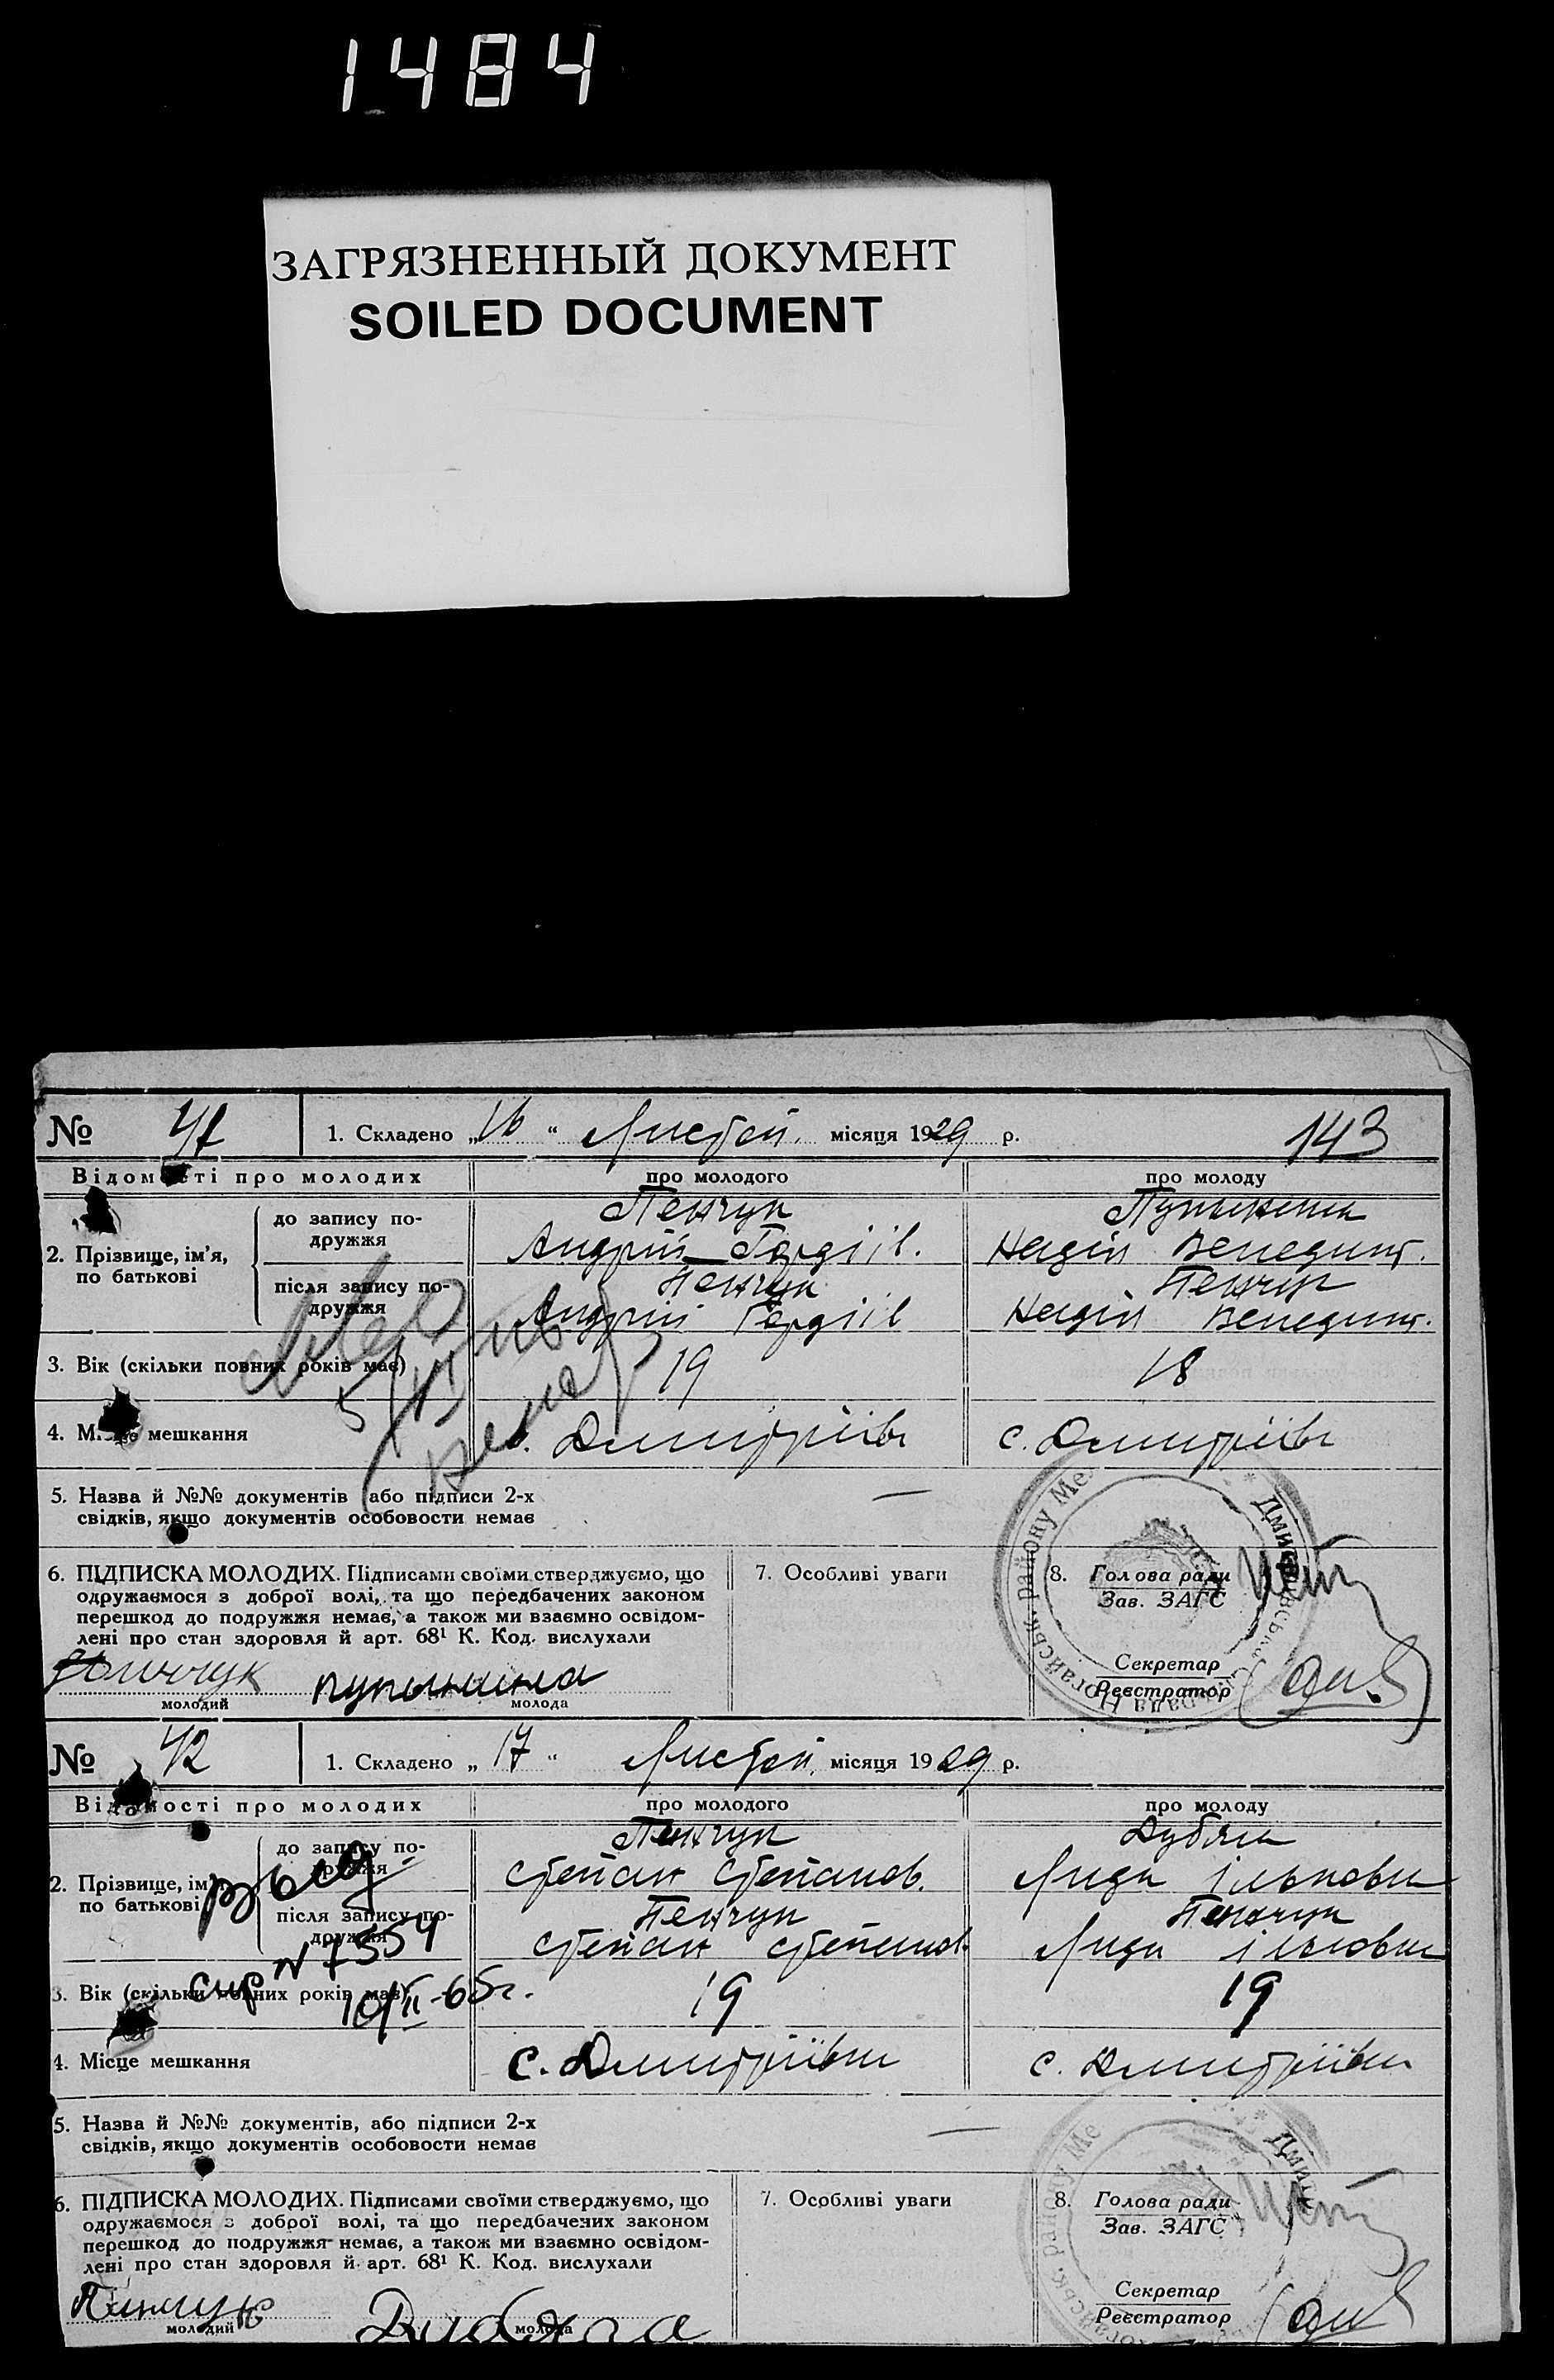 1484
ЗАГРЯЗНЕННЫЙ ДОКУМЕНТ
SOILED DOCUMENT
№ 41 1. Складено „16“ Листоп. місяця 1929 р. 143
Відомості про молодих про молодого про молоду
2. Прізвище, ім’я, по батькові
до запису подружжя
Пенчук
Андрій Гордіїв.
Надія Венедикт.
після запису подружжя
Пенчук Пенчук
Андрій Гордіїв Надія Венедикт.
3. Вік (скільки повних років має) 19 18
4. Місце мешкання с. Дмитріївк с. Дмитріївк
5. Назва й №№ документів або підписи 2-х —
свідків, якщо документів особовости немає
6. ПІДПИСКА МОЛОДИХ. Підписами своїми стверджуємо, що
одружаємося з доброї волі, та що передбачених законом
перешкод до подружжя немає, а також ми взаємно освідом-
лені про стан здоровля й арт. 68¹ К. Код. вислухали
молодий молода
7. Особливі уваги
8. Голова ради
Зав. ЗАГС
Секретар
Реєстратор
№ 42 1. Складено „17“ Листоп. місяця 1929 р.
Відомості про молодих про молодого про молоду
2. Прізвище, ім’я
по батькові
до запису по-
дружжя
Пенчук Дубяга
Степан Степанов. Лида Ільковна
після запису по-
дружжя
Пенчук Пенчук
Степан Степанов. Лида Ільковна
N 7554
3. Вік (скільки повних років має) 19 19
10/II-65г.
4. Місце мешкання с. Дмитріївка с. Дмитріївка
5. Назва й №№ документів, або підписи 2-х —
свідків, якщо документів особовости немає
6. ПІДПИСКА МОЛОДИХ. Підписами своїми стверджуємо, що
одружаємося з доброї волі, та що передбачених законом
перешкод до подружжя немає, а також ми взаємно освідом-
лені про стан здоровля й арт. 68¹ К. Код. вислухали
Дубяга
молодий молода
7. Особливі уваги
8. Голова ради
Зав. ЗАГС
Секретар
Реєстратор